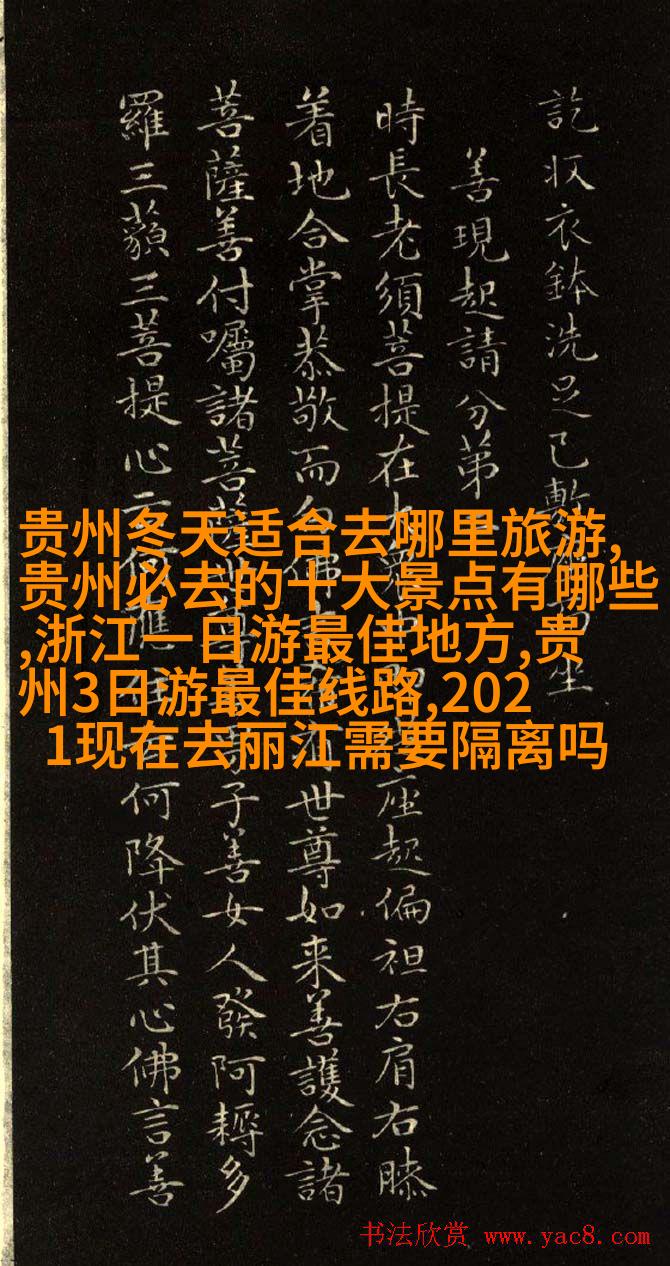 訖収衣鉢洗足已敷坐
善現起請分第
時長老須菩提在座起偏袒右肩右膝
着地合掌恭敬而白佛世尊如来善護念諸
菩薩善付囑諸菩薩子善女人發阿耨多
羅三藐三菩提心何降伏其心佛言善
贵州冬天适合去哪里旅游,
贵州必去的十大景点有哪些
,浙江一日游最佳地方,贵
州3日游最佳线路,202
1现在去丽江需要隔离吗
书法欣赏 www.yac8.com